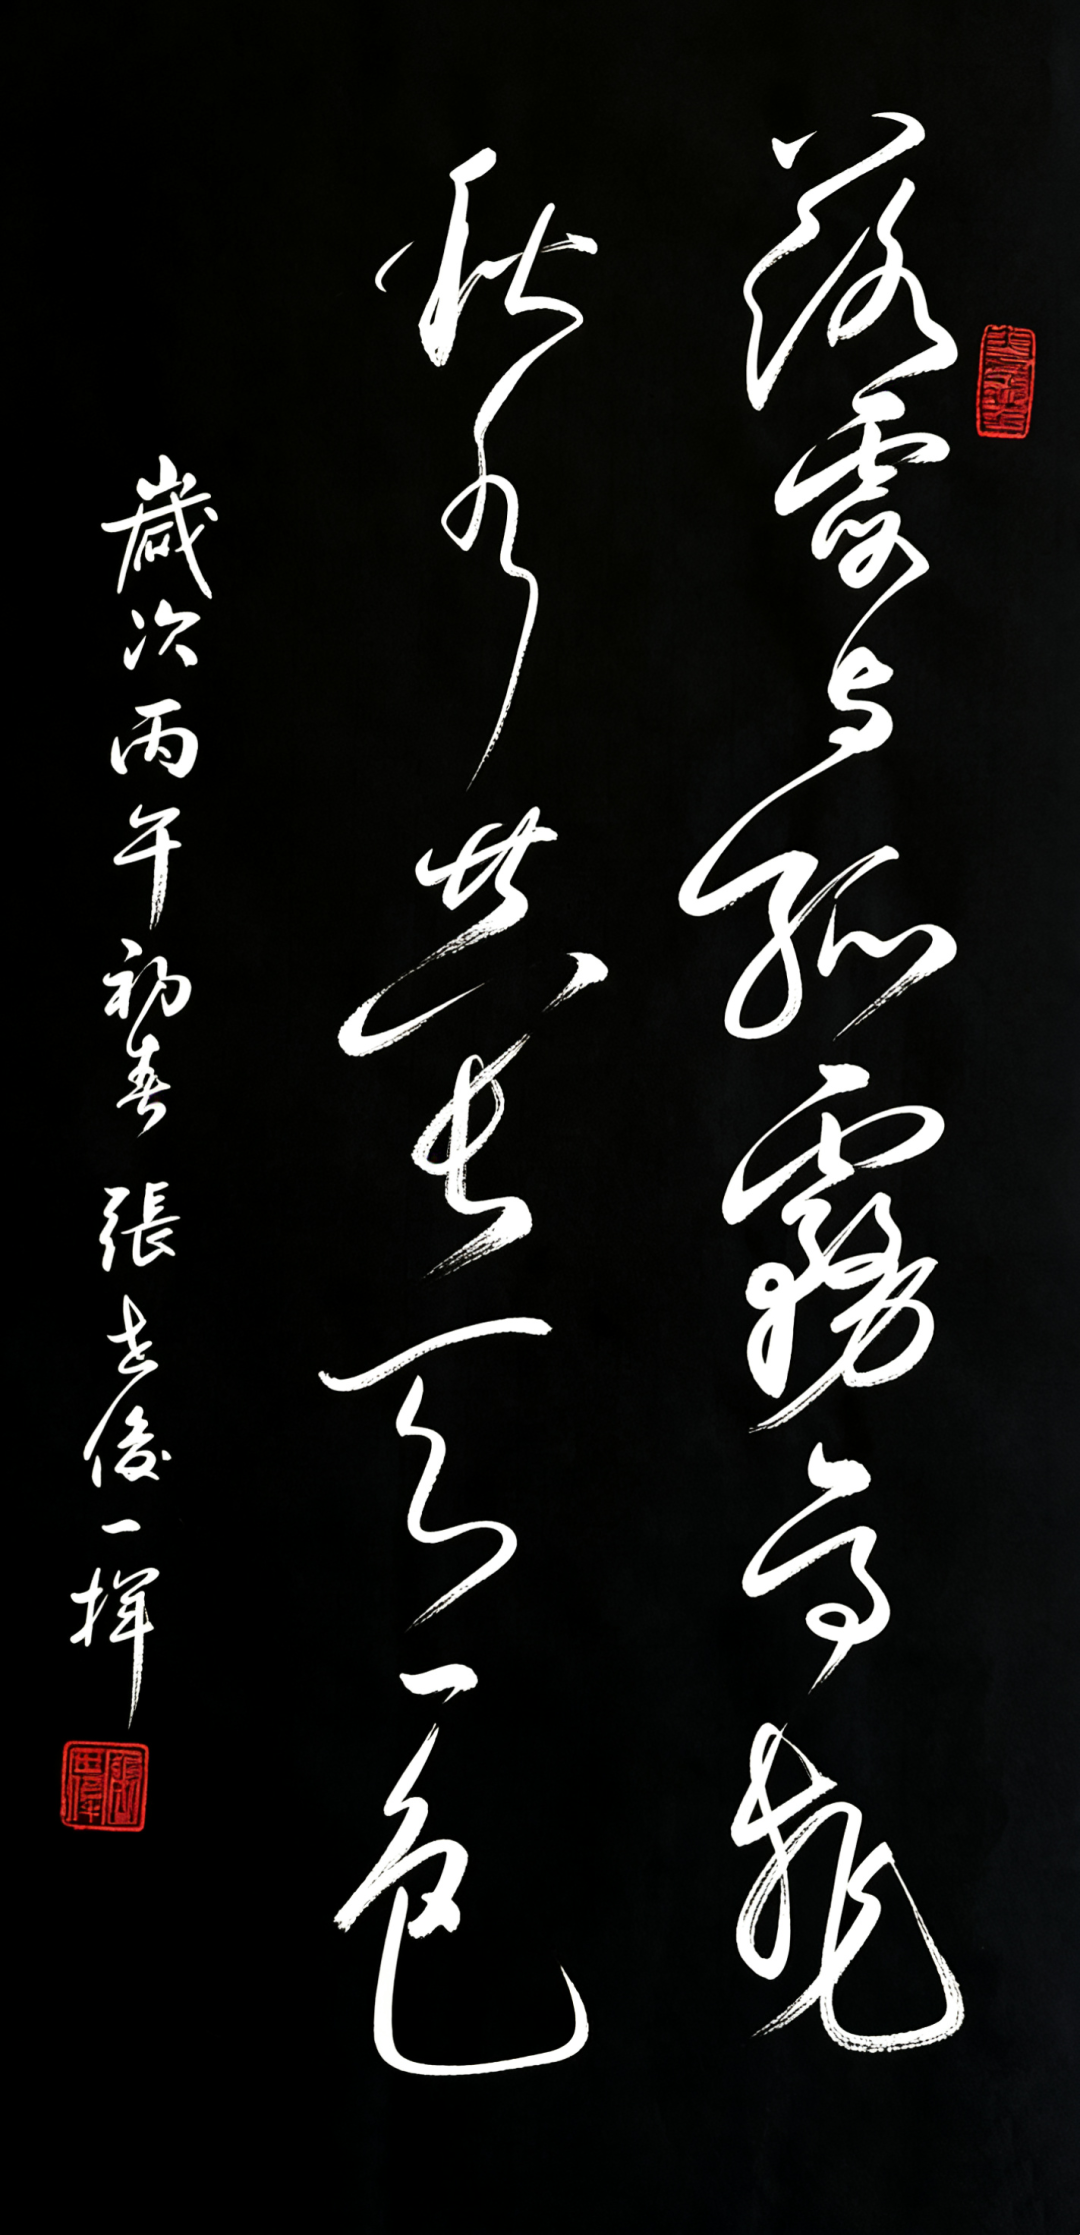 落霞与孤霧齐飛
秋水共长天一色
歲次丙午初春 張世俊一揮